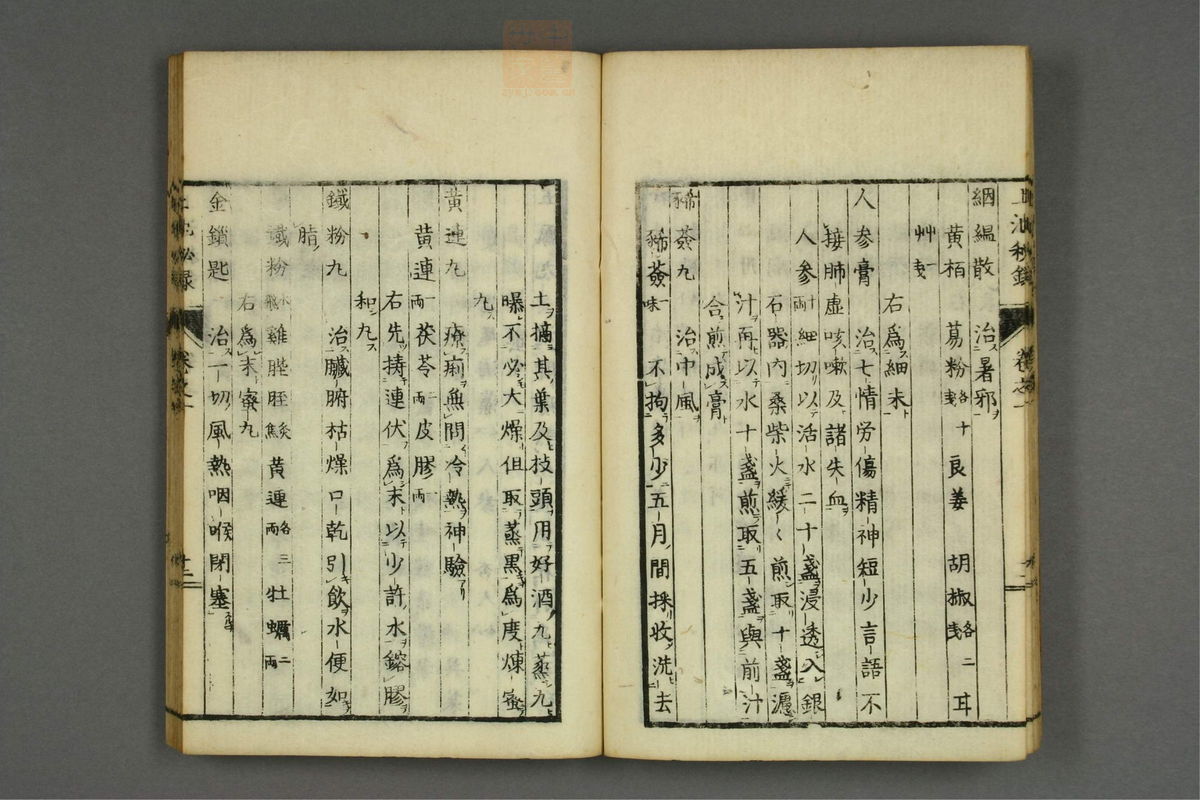 絪緼散 治暑邪
黄栢 葛粉各十戔 良姜 胡椒各二戔 耳
艸一戔
右為細末
人参膏 治七情労傷精神短少言語不
接肺虚咳嗽及諸失血
人参十両 細切以活水二十盞浸透入銀
石器内桑柴火緩〱煎取十盞濾
汁再以水十盞煎取五盞與前汁
合煎成膏
豨薟丸 治中風
豨薟一味 不拘多少五月間採收洗去
土摘其葉及枝頭用好酒九蒸九
曝不必大燥但取蒸黒為度煉蜜
丸
黄連丸 療痢無問冷熱神驗
黄連一両 茯苓二両 皮膠一両
右先擣連伏為末以少許水鎔膠
和丸
鐵粉丸 治臓腑枯燥口乾引飲水便如
脂
鐵粉水飛 雞膍胵 黄連各三両 牡蠣二両
右為末蜜丸
金鎖匙 治一切風熱咽喉閉塞
卷之一